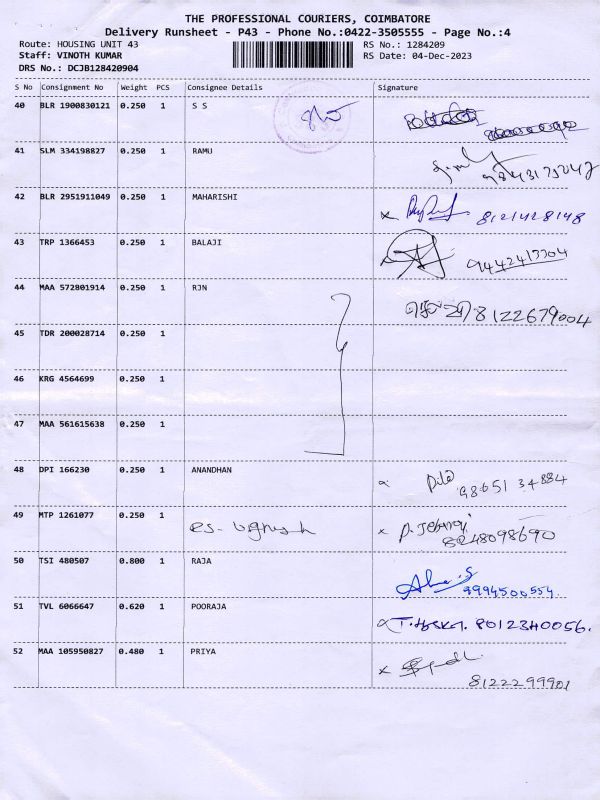 THE PROFESSIONAL COURIERS, COIMBATORE
Delivery Runsheet - P43 - Phone No.:0422-3505555 - Page No.:4
Route: HOUSING UNIT 43 RS No.: 1284209
Staff: VINOTH KUMAR RS Date: 04-Dec-2023
DRS No.: DCJB128420904
S No Consignment No Weight PCS Consignee Details Signature
40 BLR 1900830121 0.250 1 S S
41 SLM 334198827 0.250 1 RAMU
42 BLR 2951911049 0.250 1 MAHARISHI
8121428148
43 TRP 1366453 0.250 1 BALAJI
44 MAA 572801914 0.250 1 RJN
8122679004
45 TDR 200028714 0.250 1
46 KRG 4564699 0.250 1
47 MAA 561615638 0.250 1
48 DPI 166230 0.250 1 ANANDHAN
98651 34884
49 MTP 1261077 0.250 1
8248098690
50 TSI 480507 0.800 1 RAJA
9994500554
51 TVL 6066647 0.620 1 POORAJA
8012340056.
52 MAA 105950827 0.480 1 PRIYA
8122299901